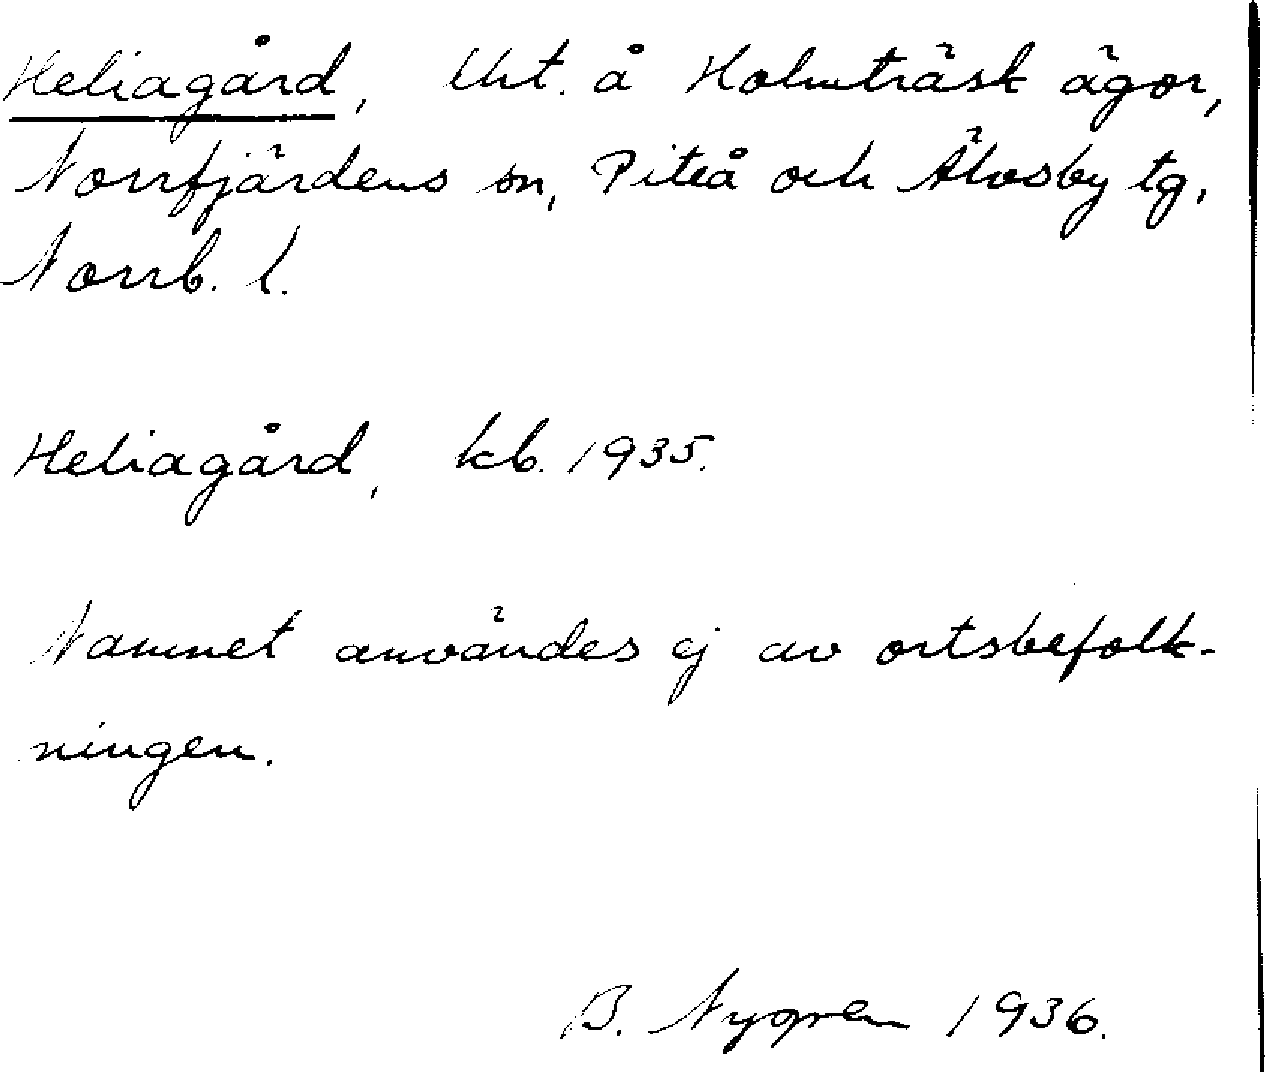 Heliagård, Urt. å Holmträsk ägor,
Norrfjärdens sn, Piteå och Älvsby tg,
Norrb. l.
Heliagård, kb. 1935.
Namnet användes ej av ortsbefolk-
ningen.
B. Nygren 1936.